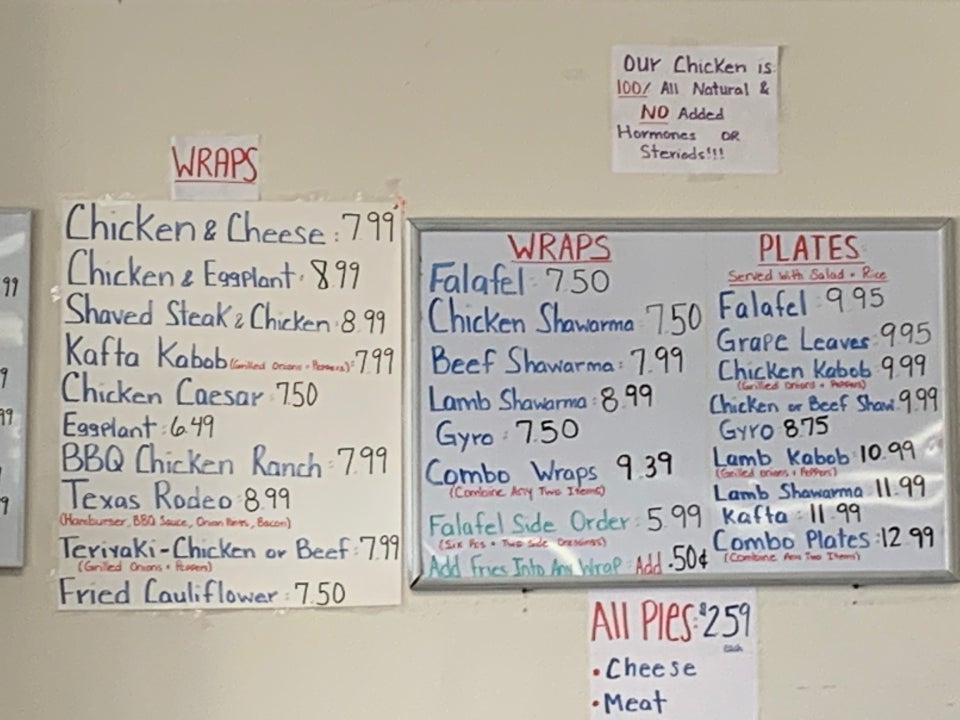 OUR Chicken is
100% All Natural &
NO Added
Hormones OR
Steriods!!!
WRAPS
Chicken & Cheese : 7.99
Chicken & Eggplant : 8.99
Shaved Steak & Chicken : 8.99
Kafta Kabob (Grilled Onions + Peppers) : 7.99
Chicken Caesar : 7.50
Eggplant : 6.49
BBQ Chicken Ranch : 7.99
Texas Rodeo : 8.99
(Hamburger, BBQ Sauce, Onion Rings, Bacon)
Teriyaki - Chicken or Beef : 7.99
(Grilled Onions + Peppers)
Fried Cauliflower : 7.50
WRAPS
Falafel : 7.50
Chicken Shawarma 7.50
Beef Shawarma : 7.99
Lamb Shawarma : 8.99
Gyro : 7.50
Combo Wraps 9.39
(Combine Any Two Items)
Falafel Side Order : 5.99
(Six Pcs + Two Side Dressings)
Add Fries Into Any Wrap : Add .50¢
PLATES
Served With Salad + Rice
Falafel : 9.95
Grape Leaves : 9.95
Chicken Kabob 9.99
(Grilled Onions + Peppers)
Chicken or Beef Shaw. 9.99
Gyro 8.75
Lamb Kabob : 10.99
(Grilled Onions + Peppers)
Lamb Shawarma 11.99
Kafta : 11.99
Combo Plates : 12.99
(Combine Any Two Items)
All Pies : $2.59
each
• Cheese
• Meat
99
9
99
9